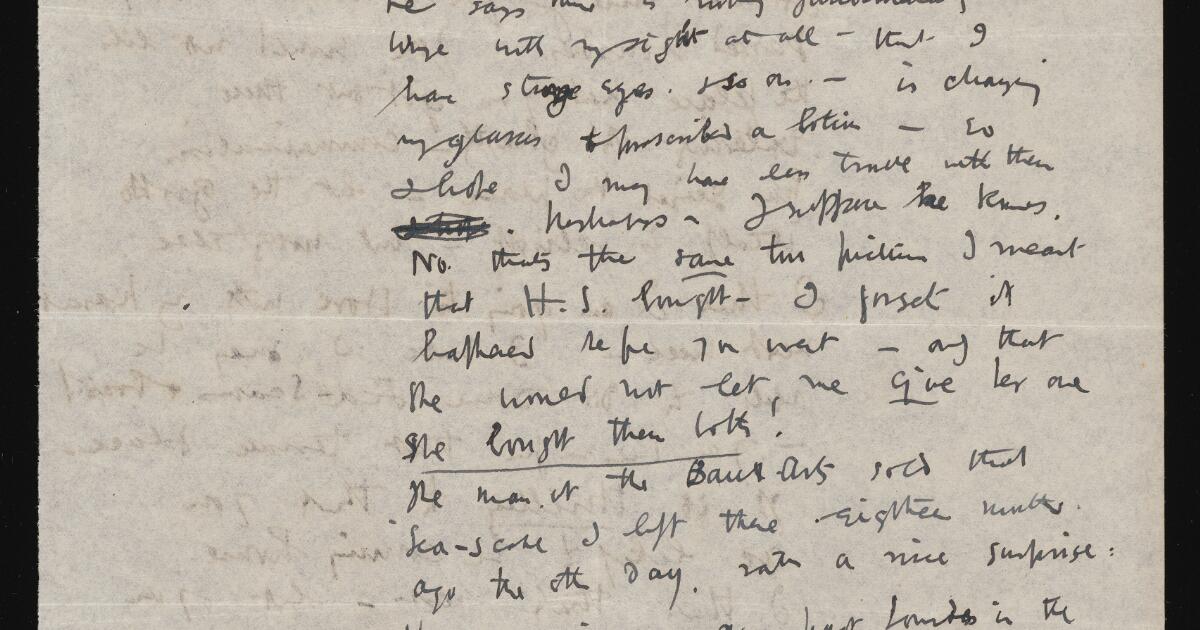 he says there is nothing
wrong with my sight at all – that I
have strange eyes. & so on. – is changing
my glasses & prescribed a lotion – so
I hope I may have less trouble with them
. Perhaps – I suppose he knows.
No. thats the same two pictures I meant
that H. S. bought – I forget it
happened before you went – and that
She would not let me give her one
She bought them both!
The man at the Beaux-Arts sold that
Sea-scape I left there eighteen months
ago the oth day. rath a nice surprise:
Lourdes in the